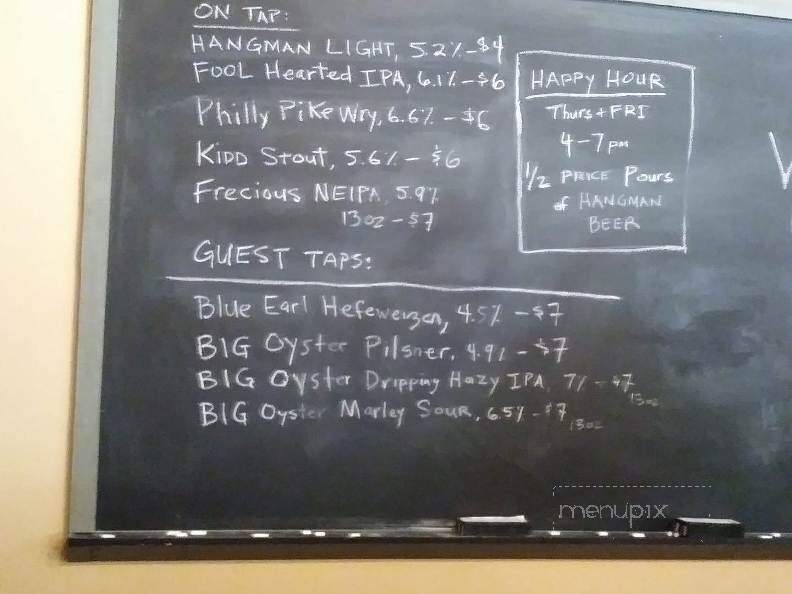 ON TAP:
HANGMAN LIGHT, 5.2% - $4
FOOL Hearted IPA, 6.1% - $6
Philly Pike Wry, 6.6% - $6
KIDD Stout, 5.6% - $6
Frecious NEIPA, 5.9%
13oz - $7
HAPPY HOUR
Thurs + FRI
4-7pm
1/2 PRICE Pours
of HANGMAN
BEER
GUEST TAPS:
Blue Earl Hefeweizen, 4.5% - $7
BIG Oyster Pilsner, 4.9% - $7
BIG Oyster Dripping Hazy IPA, 7% - $7
13oz
BIG Oyster Marley Sour, 6.5% - $7
13oz
menupix